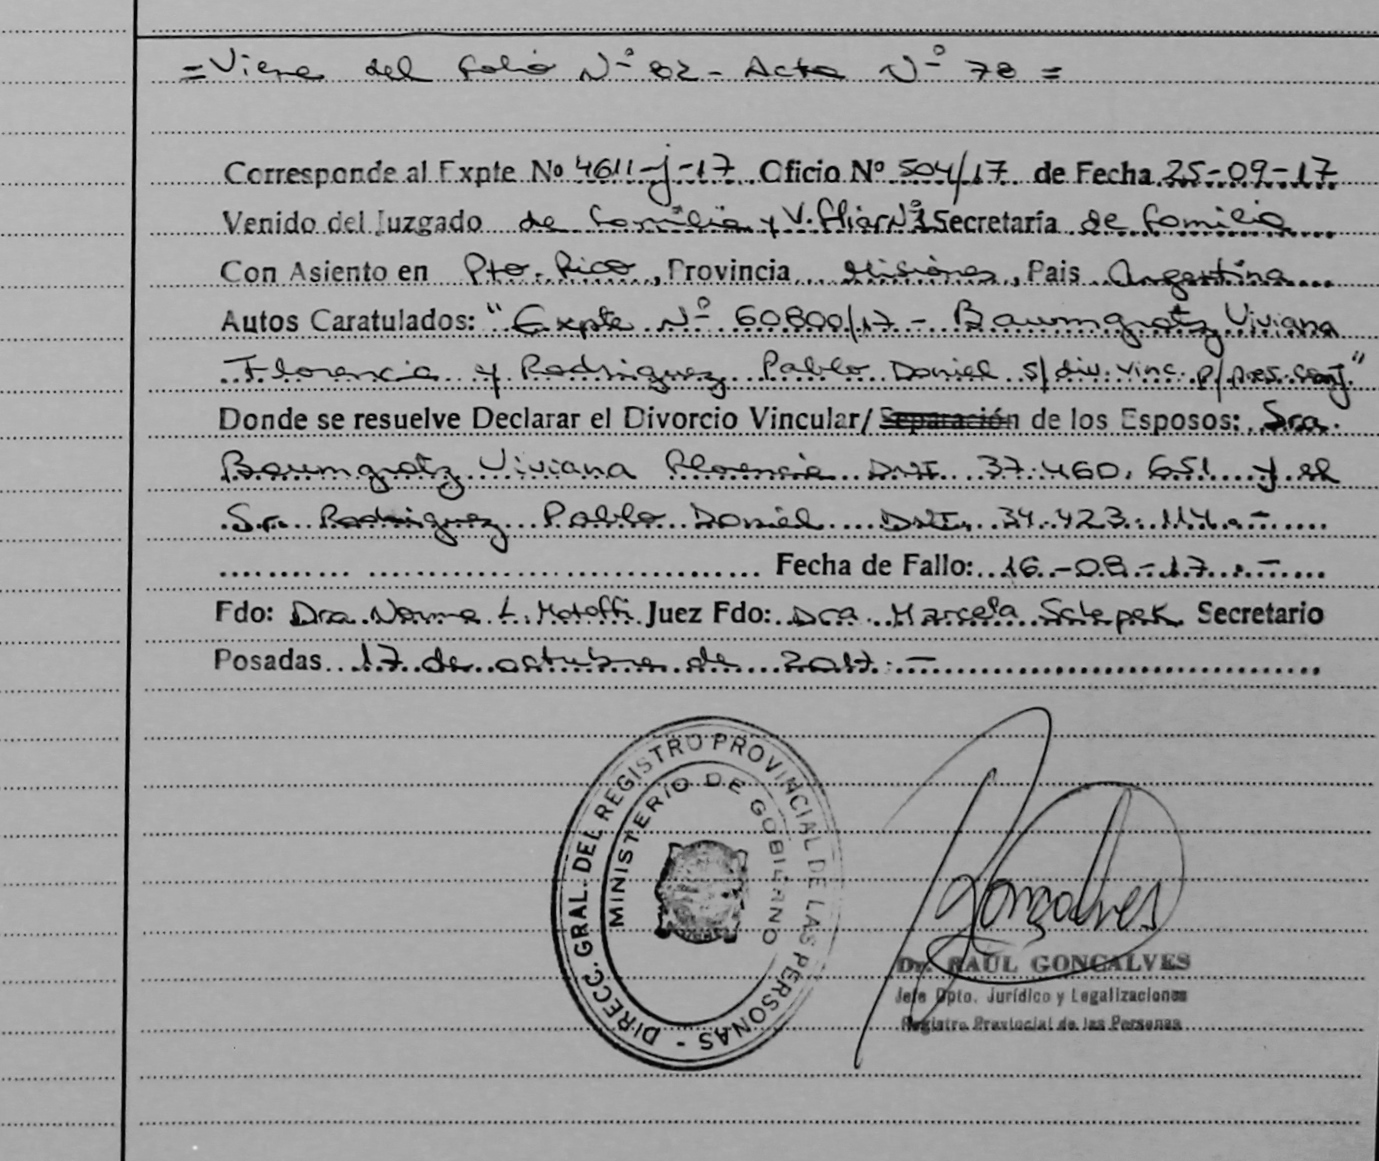 = Viene del folio Nº 82 - Acta Nº 78 =
Corresponde al Expte Nº 4611-j-17 Oficio Nº 504/17 de Fecha 25-09-17
Venido del Juzgado de familia y V. fliar Nº 1 Secretaría de familia
Con Asiento en Pto. Rico, Provincia Misiones, Pais Argentina
Autos Caratulados: "Expte Nº 60800/17 - Baumgratz Viviana
Florencia y Rodriguez Pablo Daniel s/ div. vinc. p/ pres. conj."
Donde se resuelve Declarar el Divorcio Vincular/ Separación de los Esposos: Sra.
Baumgratz Viviana Florencia DNI. 37.460.651 y el
Sr. Rodriguez Pablo Daniel DNI. 34.423.114.-
Fecha de Fallo: 16-08-17.-
Fdo: Dra. Norma L. Juez Fdo: Dra Marcela Secretario
Posadas 17 de octubre de 2017.-
DIRECC. GRAL. DEL REGISTRO PROVINCIAL DE LAS PERSONAS -
MINISTERIO DE GOBIERNO
Gonçalves
Dr. RAUL GONCALVES
Jefe Dpto. Jurídico y Legalizaciones
Registro Provincial de las Personas